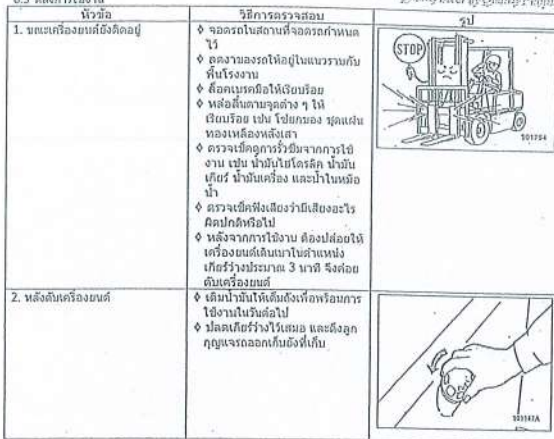 6.3 หลังการใช้งาน
หัวข้อ
วิธีการตรวจสอบ
รูป
1. ขณะเครื่องยนต์ยังติดอยู่
◊ จอดรถในสถานที่จอดรถกำหนด
ไว้
◊ ลดงาของรถให้อยู่ในแนวราบกับ
พื้นโรงงาน
◊ ล็อคเบรคมือให้เรียบร้อย
◊ หล่อลื่นตามจุดต่าง ๆ ให้
เรียบร้อย เช่น โซ่ยกของ ชุดแผ่น
ทองเหลืองหลังเสา
◊ ตรวจเช็คดูการรั่วซึมจากการใช้
งาน เช่น น้ำมันไฮโดรลิค น้ำมัน
เกียร์ น้ำมันเครื่อง และน้ำในหม้อ
น้ำ
◊ ตรวจเช็คฟังเสียงว่ามีเสียงอะไร
ผิดปกติหรือไม่
◊ หลังจากการใช้งาน ต้องปล่อยให้
เครื่องยนต์เดินเบาในตำแหน่ง
เกียร์ว่างประมาณ 3 นาที จึงค่อย
ดับเครื่องยนต์
STOP
501784
2. หลังดับเครื่องยนต์
◊ เติมน้ำมันให้เต็มถังเพื่อพร้อมการ
ใช้งานในวันต่อไป
◊ ปลดเกียร์ว่างไว้เสมอ และดึงลูก
กุญแจรถออกเก็บยังที่เก็บ